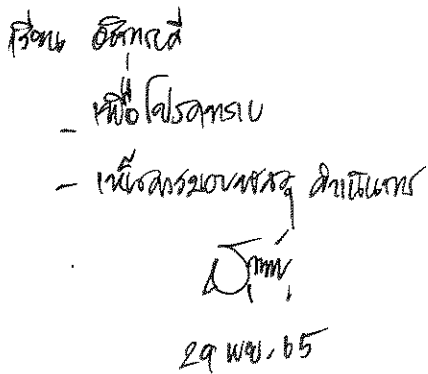 เรียน อธิการบดี
- เพื่อโปรดทราบ
- เห็นควรมอบพัสดุ ดำเนินการ
29 พย. 65